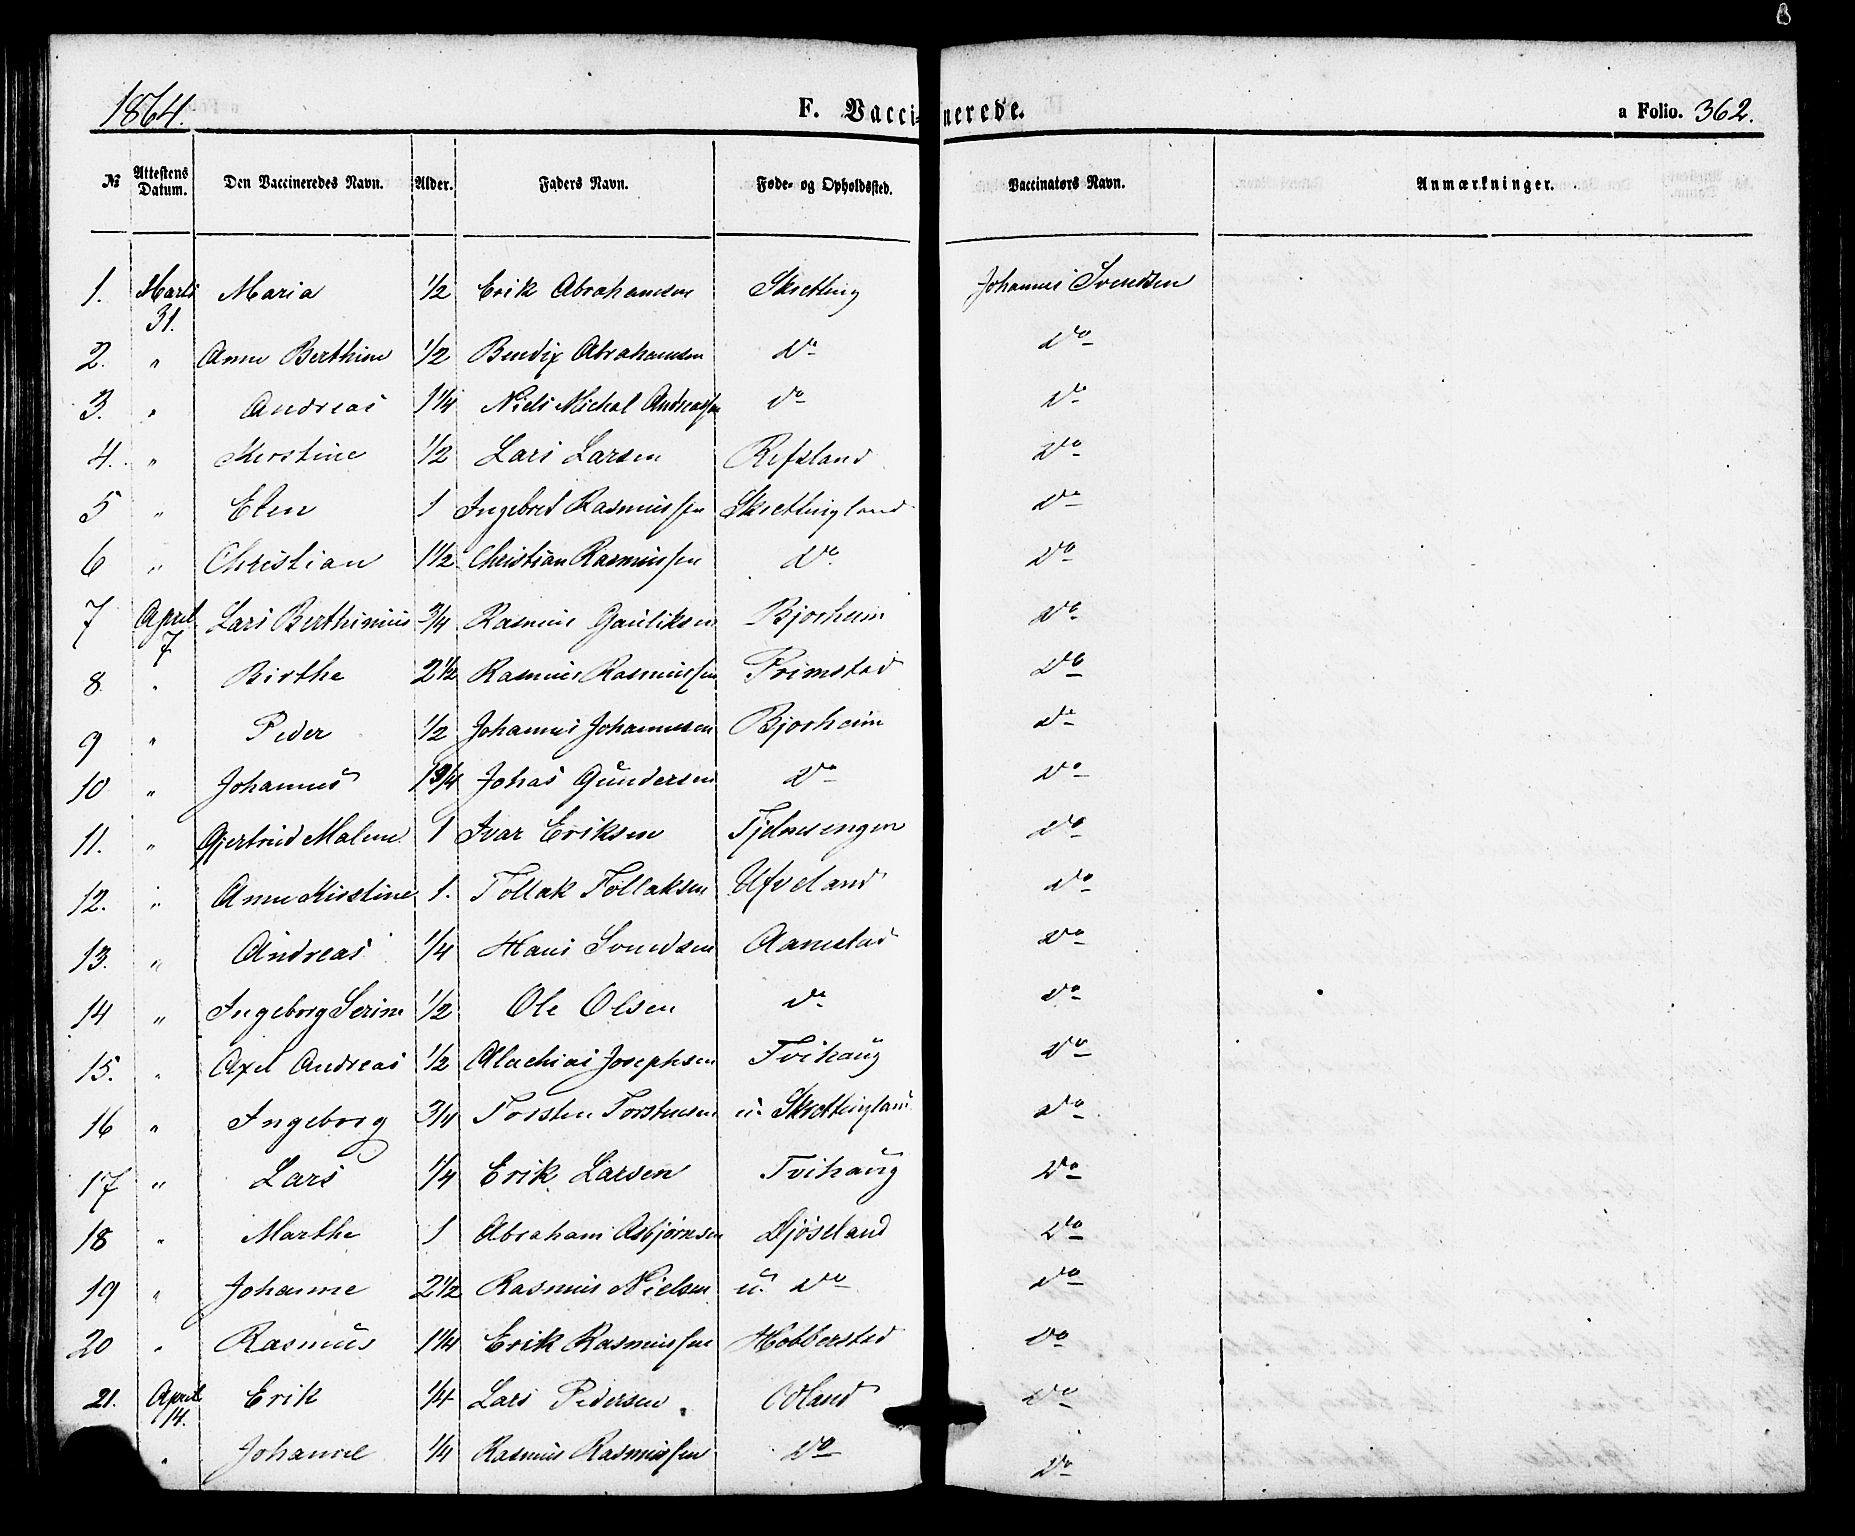 1864. F. Vaccinerede. a Folio. 362.
№ Attestens Datum. Den Vaccineredes Navn. Alder. Faders Navn. Føde- og Opholdssted. Vaccinators Navn. Anmærkninger.
1. Marts 31. Maria 1/2 Erik Abrahamsen Skretting Johannes Svendsen
2. " Anne Berthine 1/2 Bendix Abrahamsen do do
3. " Andreas 1 1/4 Niels Michal Andreassen do do
4. " Kerstine 1/2 Lars Larsen Refsland do
5 " Elen 1 Ingebret Rasmussen Skrettingland do
6 " Christian 1 1/2 Christian Rasmussen do do
7 April 7 Lars Berthinius 3/4 Rasmus Gautiksen Bjorheim do
8. " Birthe 2 1/2 Rasmus Rasmussen Primstad do
9 " Peder 1/2 Johannes Johannesen Bjorheim do
10 " Johannes 1 3/4 Johas Gundersen do do
11. " Gjertrud Malene 1 Ivar Eriksen do
12. " Anne Kirstine 1. Tollak Tollaksen Ufveland do
13. " Andreas 1/4 Hans Svendsen Aanestad do
14 " Ingeborg Serine 1/2 Ole Olsen do do
15. " Axel Andreas 1/2 Malachias Josephsen Tvihaug do
16 " Ingeborg 3/4 Torsten Torstensen u. Skrettingland do
17 " Lars 1/4 Erik Larsen Tvihaug do
18 " Marthe 1 Abraham Asbjørnsen Djøseland do
19 " Johanne 2 1/2 Rasmus Nielsen u. do do
20 " Rasmus 1 1/4 Erik Rasmussen Hobberstad do
21. April 14. Erik 1/4 Lars Pedersen Odland do
" Johanne 1/4 Rasmus Rasmussen do do